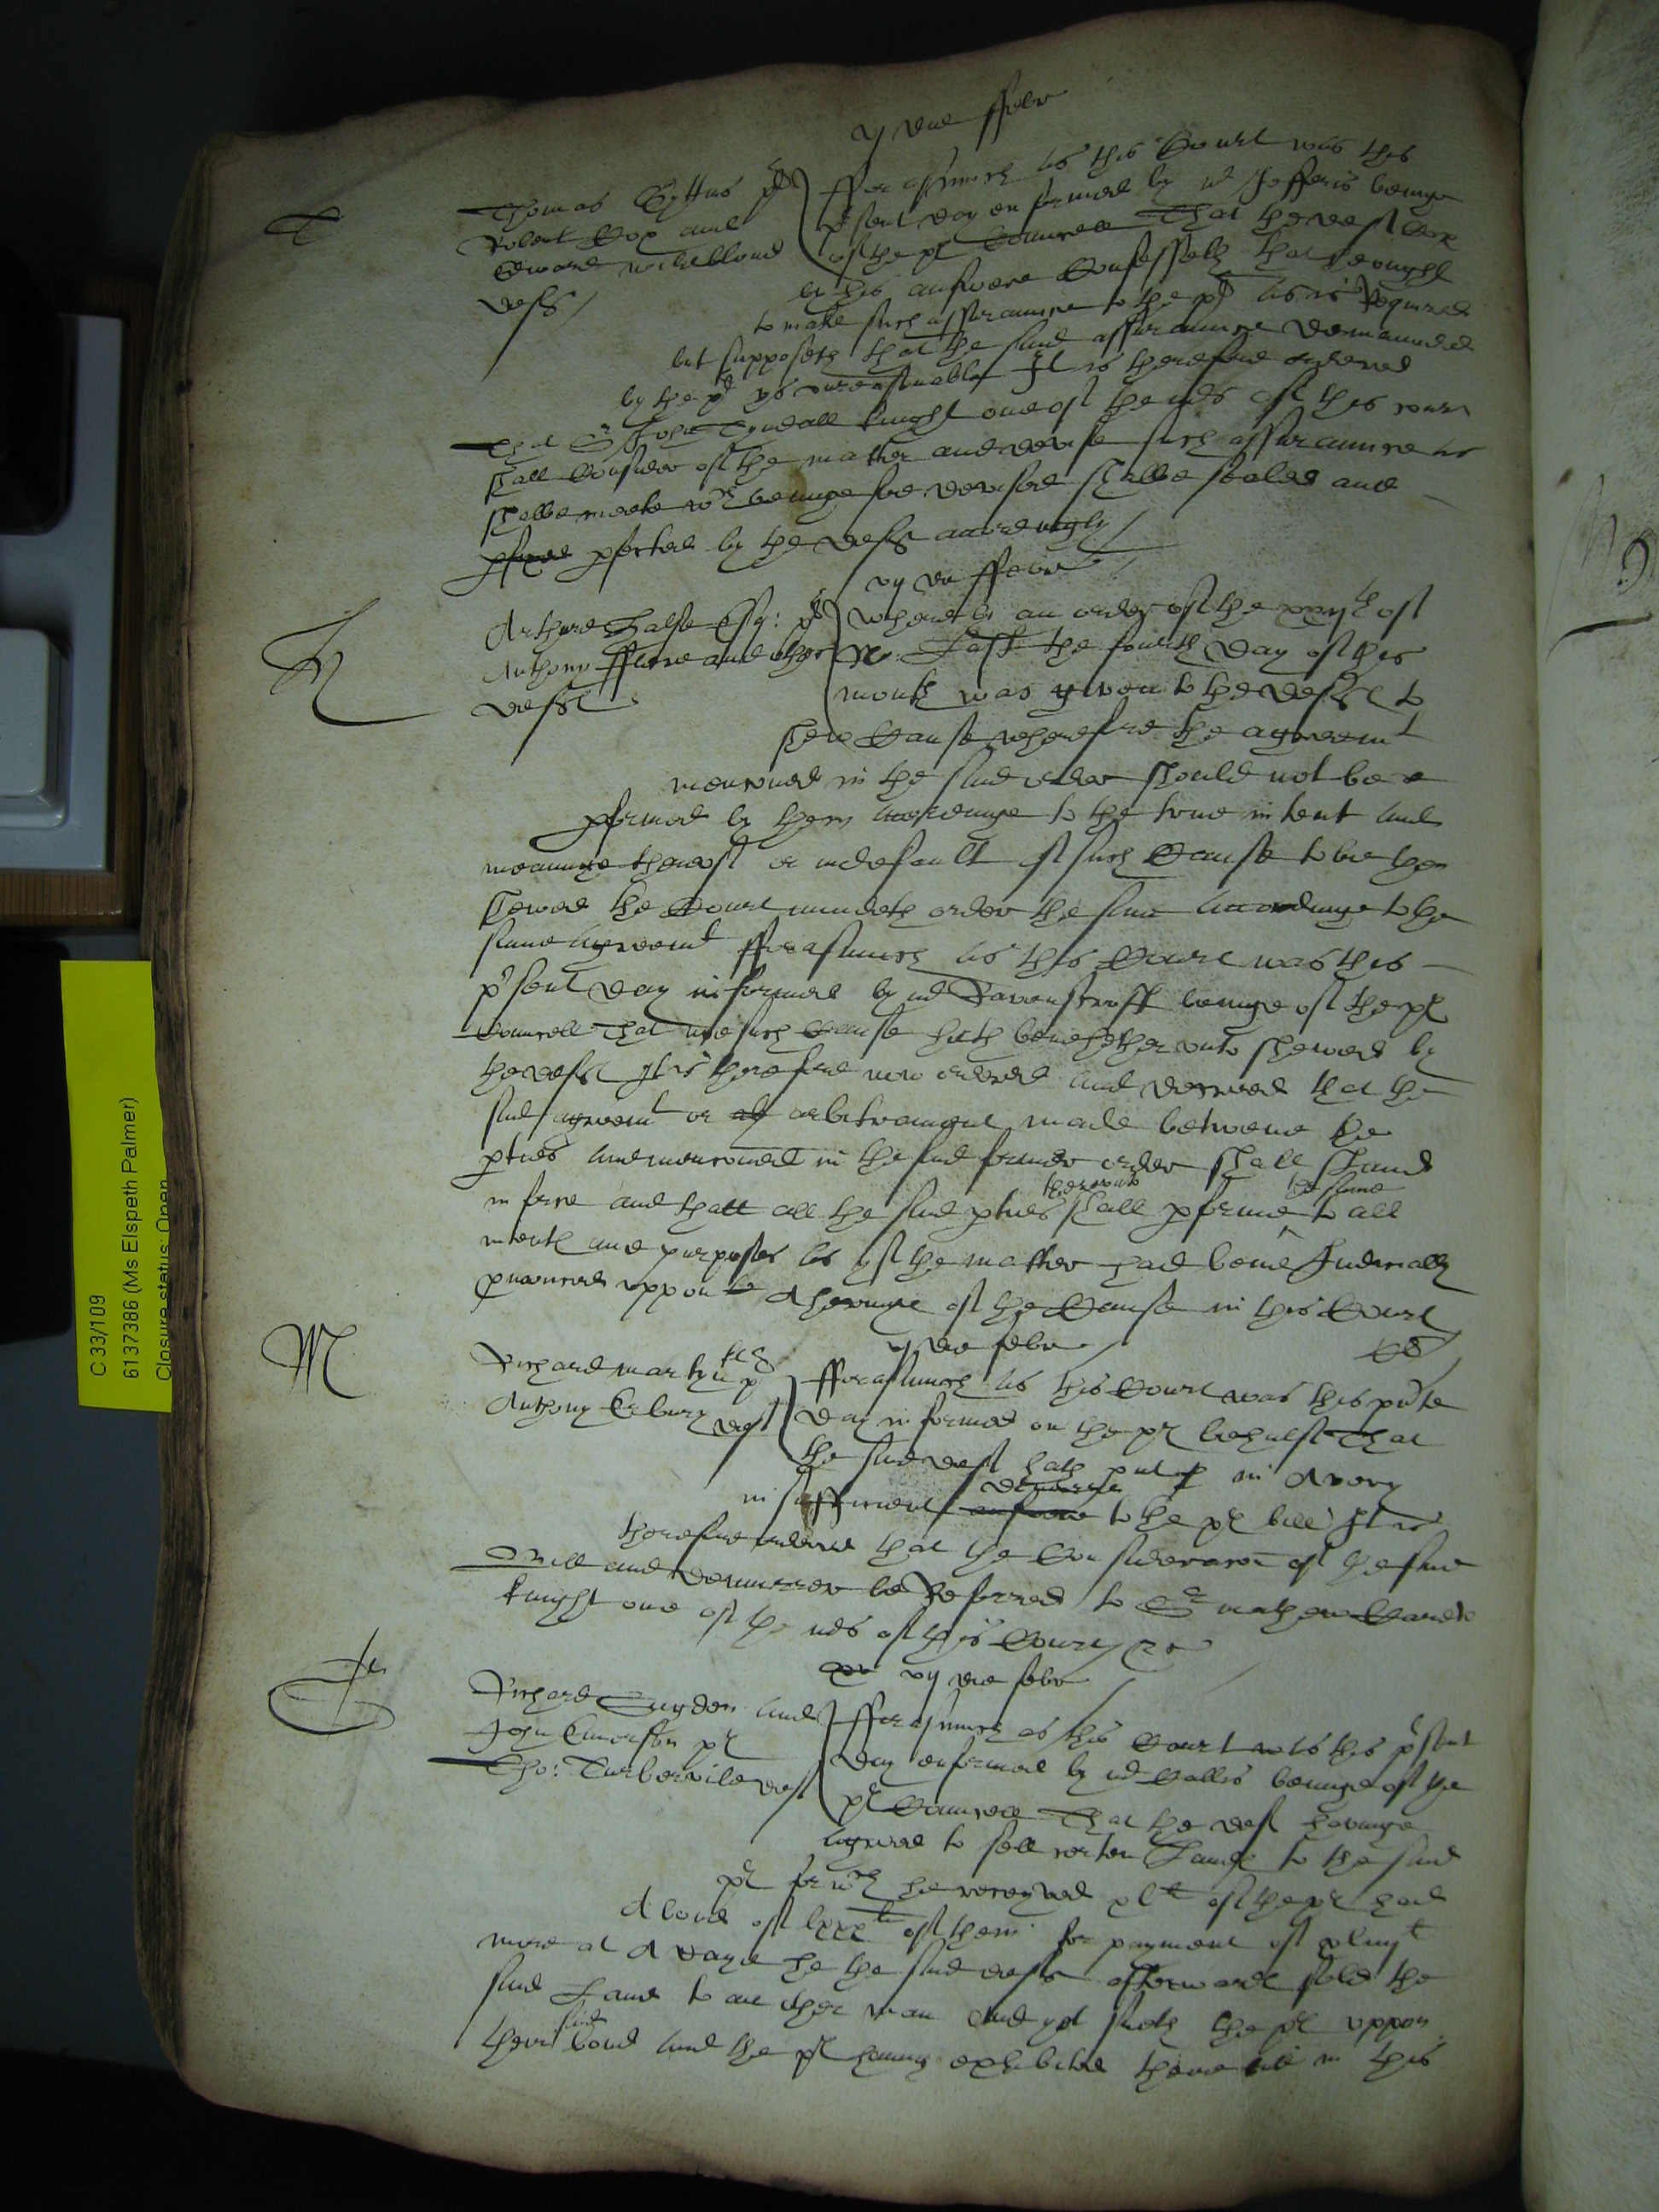 vij die ffebr
T
Thomas plt
Robert Cox and
Edward
defts
fforasmuch as this Court was this
pͬsent day enformed by mͬ Jefferis beinge
of the plt Councell That the deft Cox
by his answere Confesseth that he ought
to make such assuraunce to the plt as is Required
but supposeth that the said assuraunce demaunded
by the plt ys unreasonable It is therefore ordered
That Sͬ John Tyndall knight one of the mͬs of this court
shall Consider of the matter and devise such assuraunce as
shalbe meete wͨh beinge soe devised shalbe sealed and
pfected by the defts accordingly
vij die ffebr
H
Arthure Halse Esq: plt
Anthony and other
defts
Where by an order of the of
Last the fourth day of this
month was given to the defts to
shew Cause wherefore the agreemͭ
mencioned in the said order should not be
pformed by them accordinge to the true intent and
meaninge thereof or in default of such Cause to be then
shewed the Court would order the same accordinge to the
same agreemͭ fforasmuch as this Court was this
pͬsent day informed by mͬ Ravenscroft beinge of the plt
Councell That noe such Cause hath bene hetherunto shewed by
the defts It is therefore now ordered and decreed that the
said agreemͭ or arbitrement made betweene the
pties and mencioned in the said former order shall stand
in force and that all the said pties thereunto shall pforme the same to all
intents and purposes as if the matter had bene Iudicially
pnounced uppon A hearinge of the Cause in this Court
vij die febr
M
Richard Martyn plt
Anthony Erbury deft
fforasmuch as this Court was this pͬnte
day informed on the plt behalf That
the said deft hath put in A very
insufficient demurrer to the plt bill It is
therefore ordered that the Consideracon of the said
Bill and demurrer be Referred to Sͬ Mathew Carew
knight one of the mͬs of this Court
vij die febr
T
Richard and
John Emerson plt
Tho: Turbervile deft
fforasmuch as this Court was this pͬsent
day enformed by mͬ beinge of the
plt Councell That the deft havinge
agreed to sell certen Lands to the said
plt for wͨh he receyved of the plt had
A bond of of them for payment of
more at A daye he the said deft afterwards sold the
said Lands to another man And yet sueth the plt uppon
their said bond and the plt having exhibited their bill in this
C 33/109
6137386 (Ms Elspeth Palmer)
Closure status: Open